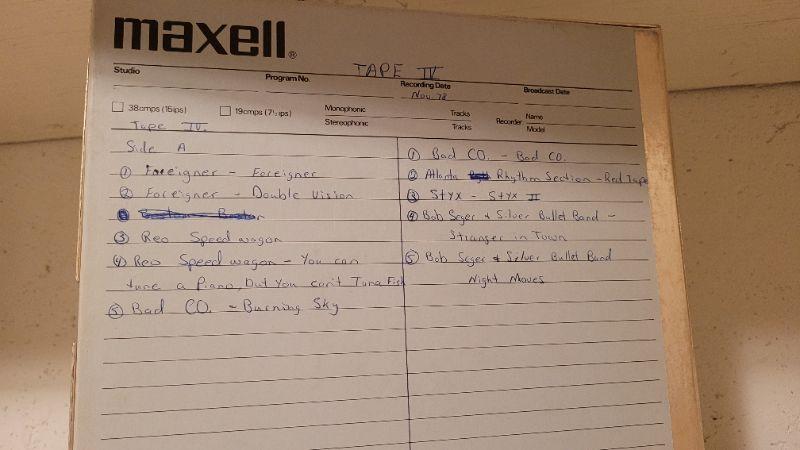 maxell®
TAPE IV
Studio Program No. Recording Date Broadcast Date
Nov. 78
38cmps (15ips) 19cmps (7½ips) Monophonic Tracks Recorder Name
Stereophonic Tracks Model
Tape IV.
Side A
① Foreigner - Foreigner
② Foreigner - Double Vision
③ Reo Speed wagon
④ Reo Speed wagon - You can
tune a Piano, but You can't Tuna Fish
⑤ Bad CO. - Burning Sky
① Bad CO. - Bad CO.
② Atlanta Rhythm Section - Red Tape
③ Styx - Styx II
④ Bob Seger & Silver Bullet Band -
Stranger in Town
⑤ Bob Seger & Silver Bullet Band
Night Moves